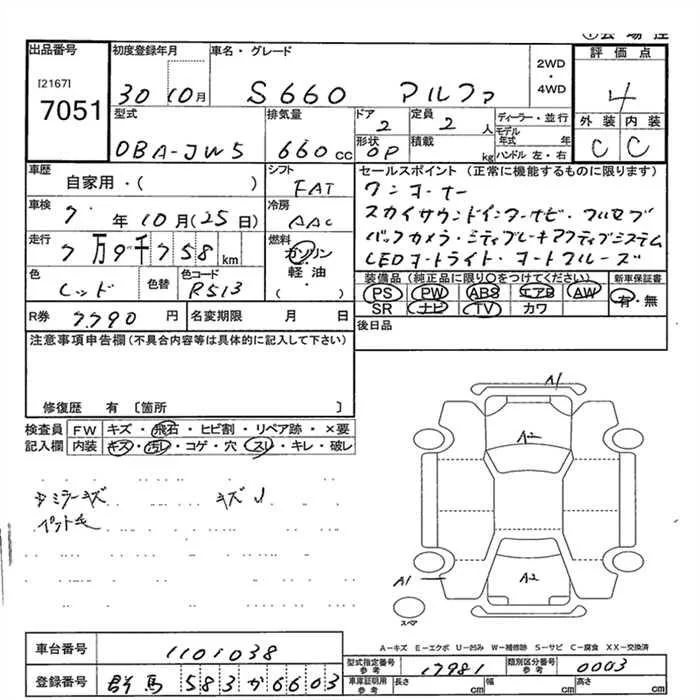 ①会場控
出品番号 初度登録年月 車名・グレード 2WD・4WD 評価点
[2167]
7051
30 10月 S660 アルファ 4
型式 排気量 ドア 定員 ディーラー・並行 外装 内装
2 2人 モデル年式 年
DBA-JW5 660cc 形状 OP 積載 kg ハンドル 左・右 C C
車歴 シフト セールスポイント(正常に機能するものに限ります)
自家用・( ) FAT ワンオーナー
車検 7年10月(25日) 冷房 AAC スカイサウンドインターナビ・フルセグ
走行 7万9千758km 燃料 ガソリン・軽油・( ) バックカメラ・シティブレーキアクティブシステム
LEDオートライト・オートクルーズ
色 レッド 色替 色コード R513 装備品(純正品に限り○をつけてください) 新車保証書
PS PW ABS エアB AW 有・無
SR ナビ TV カワ
R券 7790円 名変期限 月 日 後日品
注意事項申告欄(不具合内容等は具体的に記入して下さい)
修復歴 有 〔箇所 〕
検査員 FW キズ・飛石・ヒビ割・リペア跡・×要
記入欄 内装 キズ・汚レ・コゲ・穴・スレ・キレ・破レ
ミラーキズ キズ
ペット毛
A1
A2
A2
A1
スペア
A-キズ E-エクボ U-凹み W-補修跡 S-サビ C-腐食 XX-交換済
車台番号 1101038
型式指定番号 参考 17981 類別区分番号 参考 0003
登録番号 群馬 583 か 6603 車庫証明用 参考 長さ cm 幅 cm 高さ cm